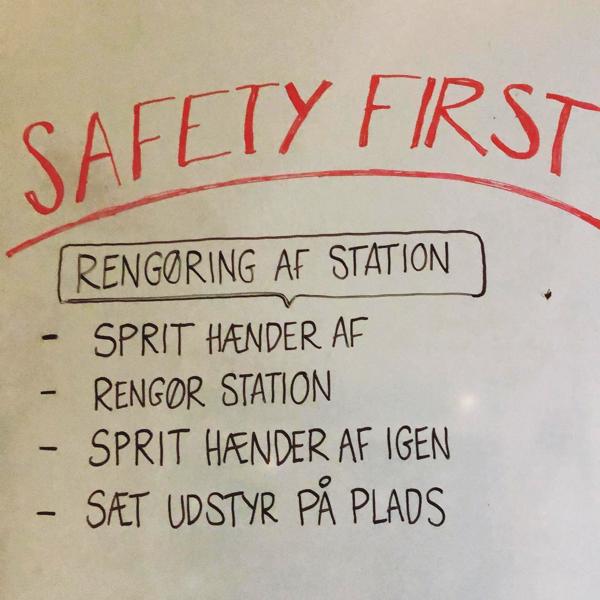 SAFETY FIRST
RENGØRING AF STATION
- SPRIT HÆNDER AF
- RENGØR STATION
- SPRIT HÆNDER AF IGEN
- SÆT UDSTYR PÅ PLADS